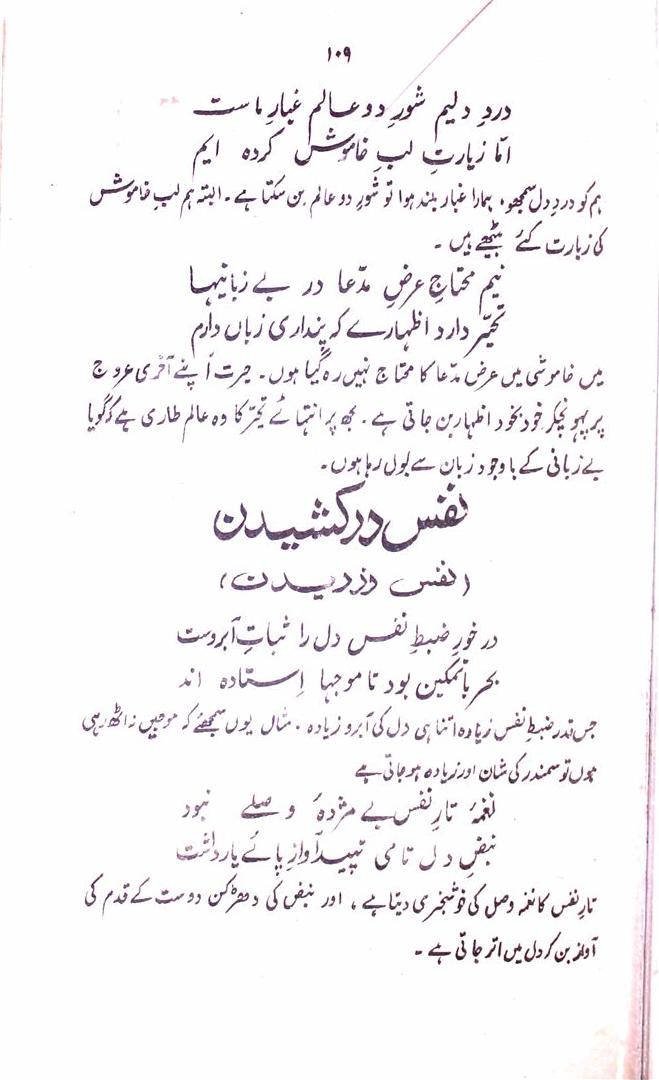 ۱۰۹
دردِ دلیم شورِ دو عالم غبارِ ماست
امّا زیارتِ لبِ خاموش کردہ ایم
ہم کو دردِ دل سمجھو، ہمارا غبار بلند ہوا تو شورِ دو عالم بن سکتا ہے۔ البتہ ہم لبِ خاموش
کی زیارت کئے بیٹھے ہیں۔
نیم محتاجِ عرضِ مدّعا در بے زبانیہا
تحیّر دارد اظہارے کہ پنداری زباں دارم
میں خاموشی میں عرض مدّعا کا محتاج نہیں رہ گیا ہوں۔ حیرت اپنے آخری عروج
پر پہونچکر خود بخود اظہار بن جاتی ہے۔ مجھ پر انتہائے تحیّر کا وہ عالم طاری ہے کہ گویا
بے زبانی کے باوجود زبان سے بول رہا ہوں۔
نفس در کشیدن
(نفس دزدیدن)
در خورِ ضبطِ نفس دل را ثباتِ آبروست
بحر باتمکین بود تا موجہا اِستادہ اند
جس قدر ضبطِ نفس زیادہ اتنا ہی دل کی آبرو زیادہ۔ مثال یوں سمجھئے کہ موجیں نہ اٹھ رہی
ہوں تو سمندر کی شان اور زیادہ ہو جاتی ہے
نغمۂ تارِ نفس بے مژدۂ وصلے نبود
نبضِ دل تا می تپید آوازِ پائے یار داشت
تارِ نفس کا نغمہ وصل کی خوشخبری دیتا ہے، اور نبض کی دھڑکن دوست کے قدم کی
آواز بن کر دل میں اتر جاتی ہے۔